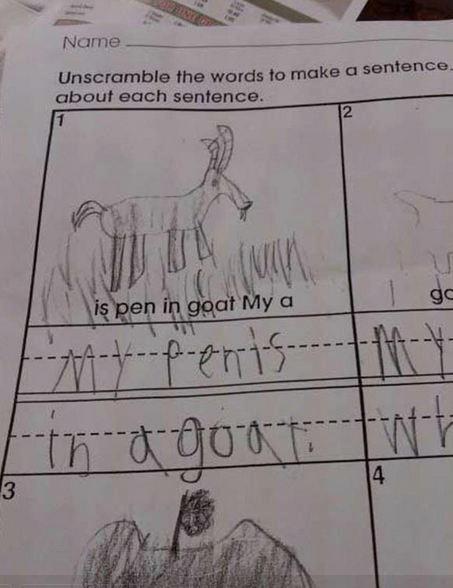 Name
Unscramble the words to make a sentence.
about each sentence.
1
2
is pen in goat My a
I go
My penis
My
in a goat.
3
4